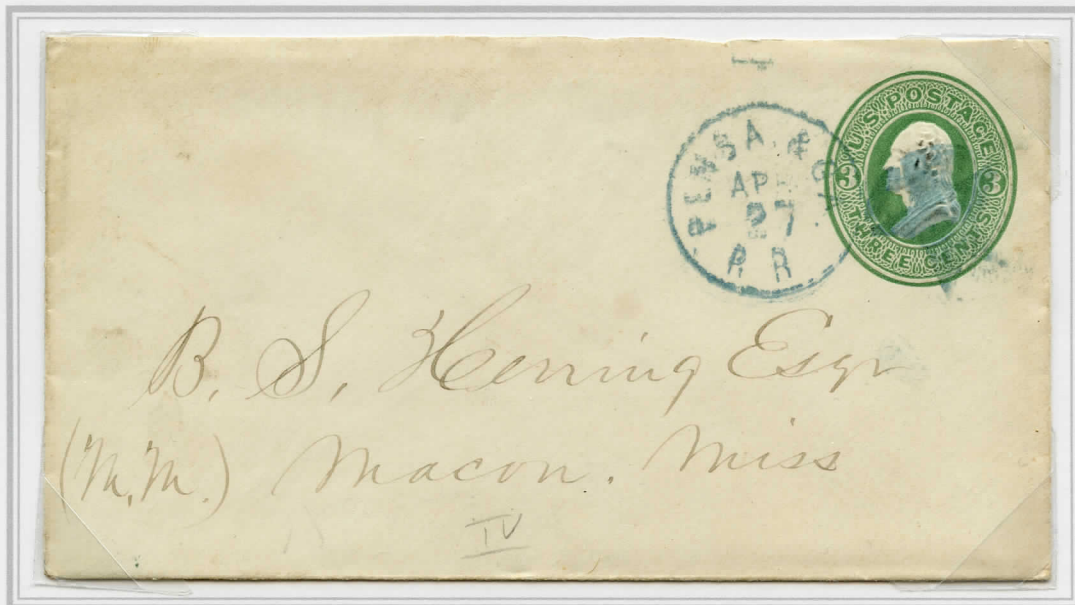 PENSA. &
APR
27
R R
U.S. POSTAGE
3 3
THREE CENTS
B. S. Herring Esqr
(M.M.) Macon. Miss
IV